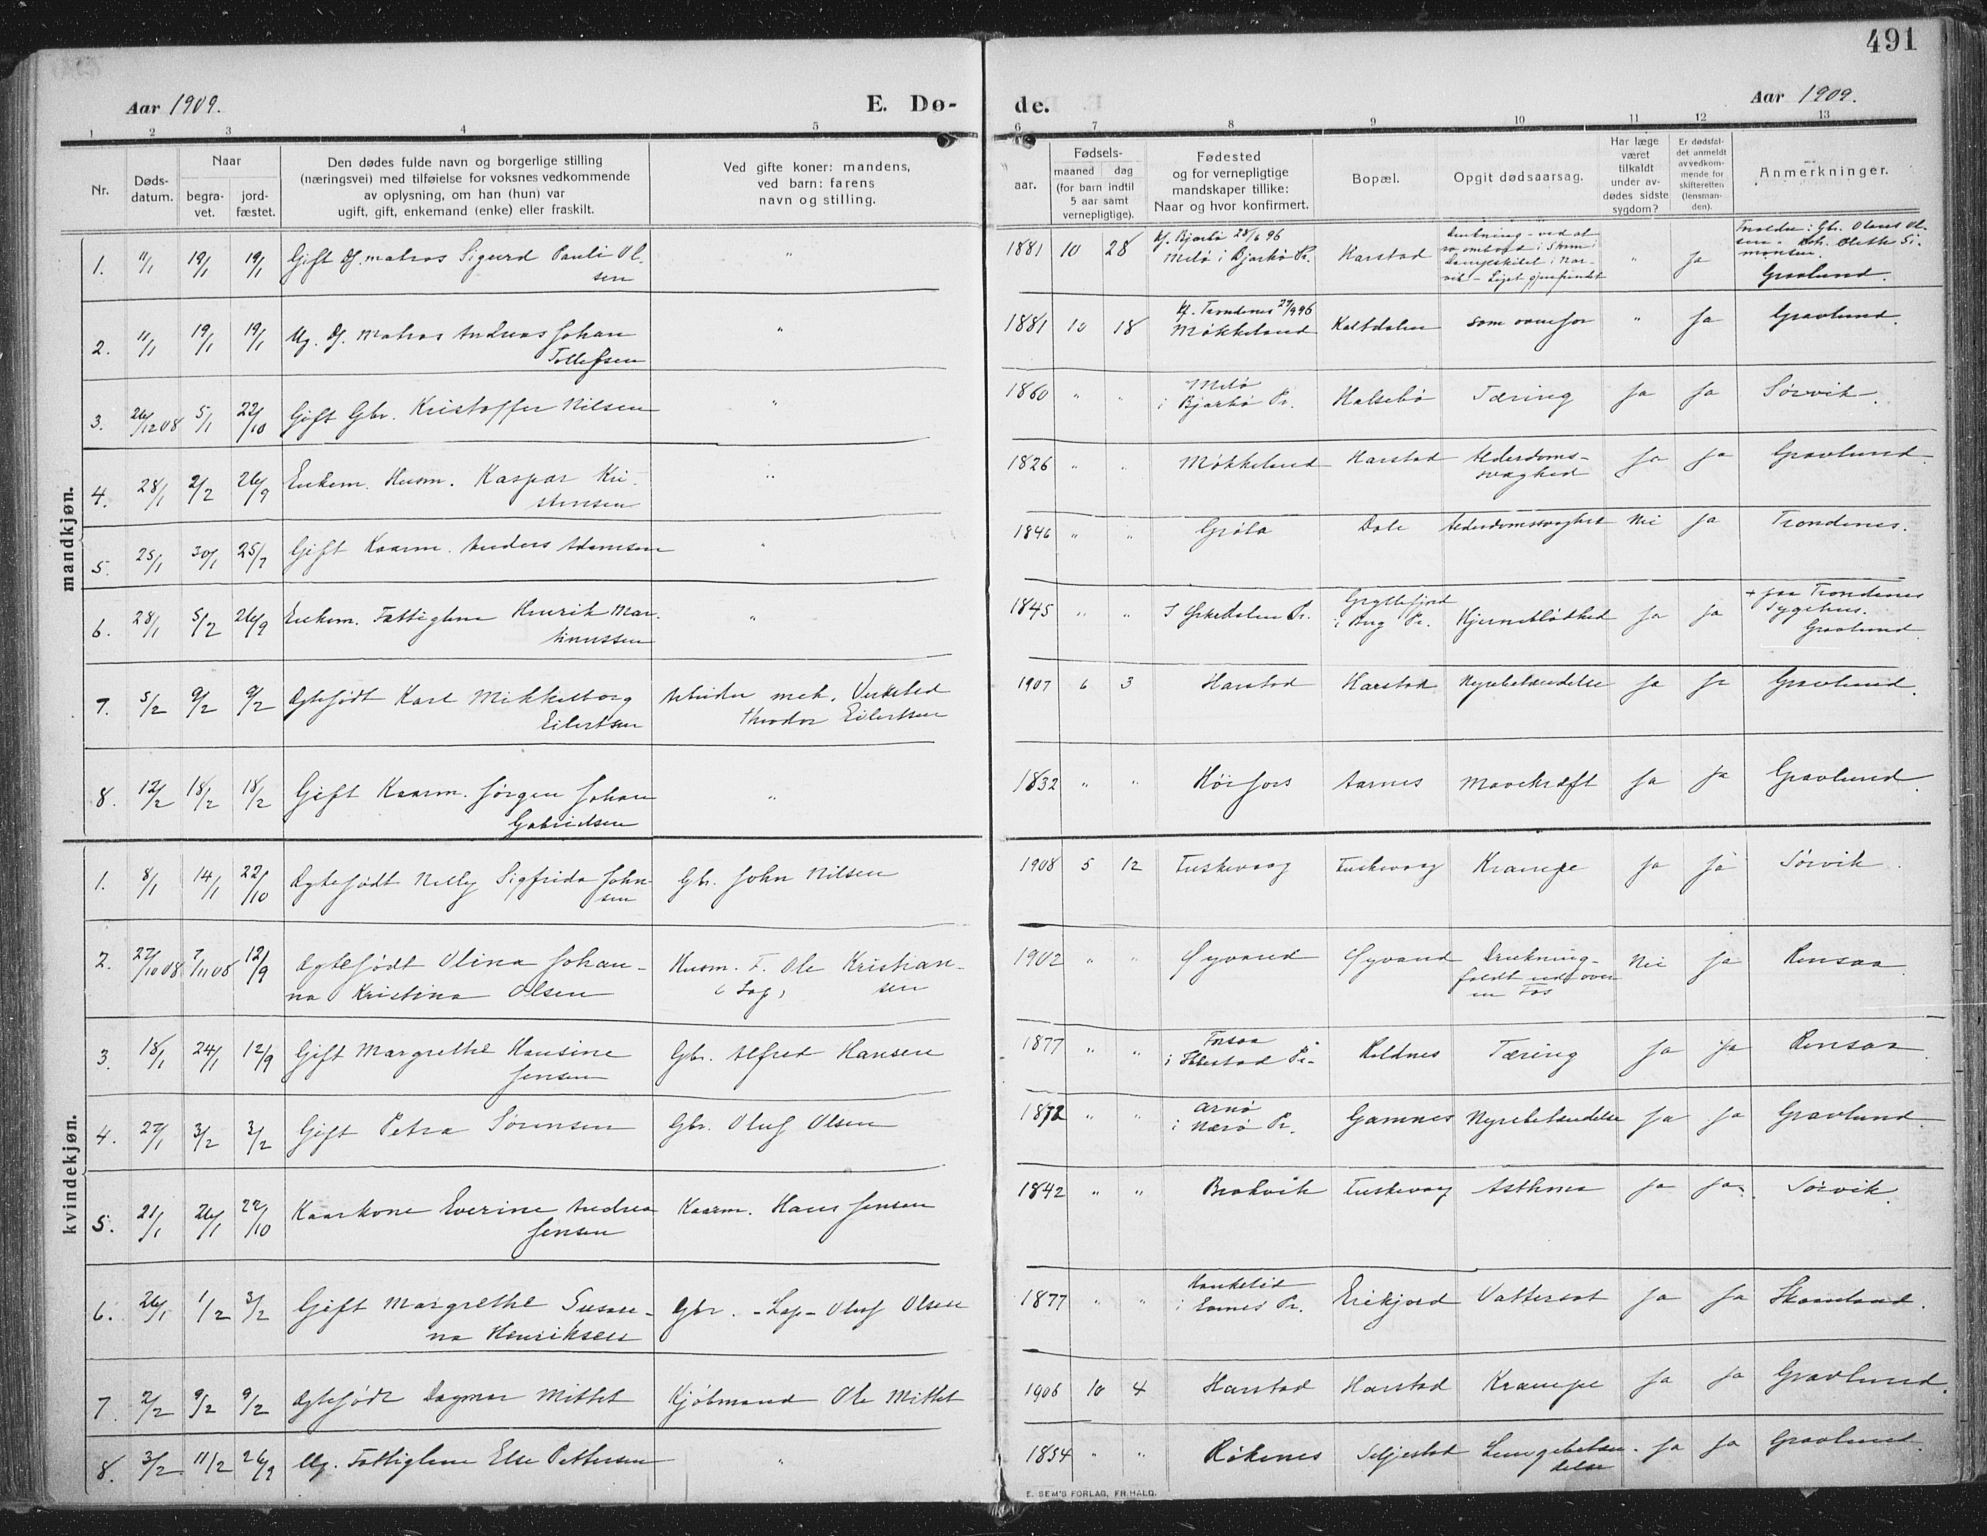 491
Aar 1909.
E. Dø-
de.
Aar 1909.
1 2 3 4 5 6 7 8 9 10 11 12 13
Nr.
Døds-
datum.
Naar
begra-
vet.
jord-
fæstet.
Den dødes fulde navn og borgerlige stilling
(næringsvei) med tilføielse for voksnes vedkommende
av oplysning, om han (hun) var
ugift, gift, enkemand (enke) eller fraskilt.
Ved gifte koner: mandens,
ved barn: farens
navn og stilling.
aar.
Fødsels-
maaned dag
(for barn indtil
5 aar samt
vernepligtige).
Fødested
og for vernepligtige
mandskaper tillike:
Naar og hvor konfirmert.
Bopæl.
Opgit dødsaarsag.
Har læge
været
tilkaldt
under av-
dødes sidste
sygdom?
Er dødsfal-
det anmeldt
av vedkom-
mende for
skifteretten
(lensman-
den).
Anmerkninger.
mandkjøn.
1. 11/1 19/1 19/1 Gift Df. matros Sigurd Pauli Ol-
sen " 1881 10 28 Kf. Bjarkö 28/6 96
Melö i Bjarkö Pr. Harstad Drukning - ved at
" Ja
Gravlund.
2. 11/1 19/1 19/1 Ug. Df. Matros Andreas Johan
Tollefsen " 1881 10 18 Kf. Trondenes 27/9 96
Møkkeland Kaltdalen som ovenfor " Ja Gravlund.
3. 26/12 08 5/1 22/10 Gift Gbr. Kristoffer Nilsen " 1860 " " Melö
i Bjarkö Pr. Halsebö Tæring Ja Ja Sörvik.
4. 28/1 2/2 26/9 Enkem. Husm. Kaspar Kri-
stensen " 1826 " " Møkkeland Harstad Alderdoms-
svaghed Ja Ja Gravlund.
5. 25/1 30/1 25/7 Gift Kaarm. Anders Adamsen " 1846 " " Gröla Dale Alderdomssvaghet Nei Ja Trondenes.
6. 28/1 5/2 26/9 Enkem. Fattiglem Henrik Mar-
tinussen " 1845 " " I Ørkedalen Pr. Gryllefjord
i Berg Pr. Hjerneblödhed Ja Ja + paa Trondenes
Sygehus.
Gravlund.
7. 5/2 9/2 9/2 Ægtefödt Karl Mikkelborg
Eilertsen Arbeider mek. Verksted
Theodor Eilertsen 1907 6 3 Harstad Harstad Nyrebetændelse Ja Ja Gravlund.
8. 12/2 18/2 18/2 Gift Kaarm. Jörgen Johan
Gabrielsen " 1832 " " Höifors Aarnes Mavekræft Ja Ja Gravlund.
kvindekjøn.
1. 8/1 14/1 22/10 Ægtefödt Nelly Sigfrida John-
sen Gbr. John Nilsen 1908 5 12 Fuskevaag Fuskevaag Krampe Ja Ja Sörvik.
2. 27/10 08 7/11 08 12/9 Ægtefödt Olina Johan-
na Kristina Olsen Husm. F. Ole Kristian-
(Lap) sen 1902 " " Øyvand Øyvand Drukning-
faldt ud over
en Fos Nei Ja Rensaa.
3. 18/1 24/1 12/9 Gift Margrethe Hansine
Jensen Gbr. Alfred Hansen 1877 " " Forsaa
i Ibbestad Pr. Roldnes Tæring Ja Ja Rensaa.
4. 27/1 3/2 3/2 Gift Petra Sörensen Gbr. Oluf Olsen 1872 " " Arnö
i Nærö Pr. Gamnes Nyrebetændelse Ja Ja Gravlund.
5. 21/1 26/1 22/10 Kaarkone Everine Andrea
Jensen Kaarm. Hans Jensen 1842 " " Brokvik Fuskevaag Asthma Ja Ja. Sörvik.
6. 26/1 1/2 3/2 Gift Margrethe Susan-
na Henriksen Gbr. - Lap - Oluf Olsen 1877 " "
i Evenes Pr. Erikjord Vattersot Ja Ja Skaanland.
7. 2/2 9/2 9/2 Ægtefödt Dagmar Mittet Kjöbmand Ole Mittet 1906 10 4 Harstad Harstad Krampe Ja Ja Gravlund.
8. 3/2 11/2 26/9 Ug. Fattiglem Else Pettersen " 1854 " " Rökenes Seljestad Lungebetæn-
delse Ja Ja Gravlund.
E. SEM'S FORLAG, FR.HALD.